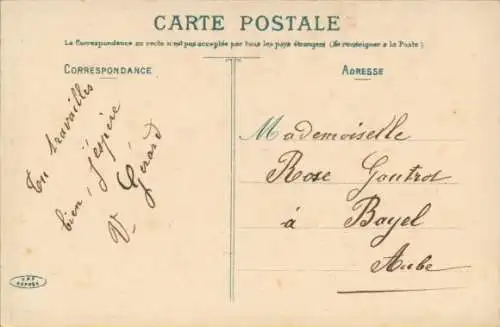 CARTE POSTALE
La Correspondance au recto n'est pas acceptée par tous les pays étrangers (Se renseigner à la Poste)
CORRESPONDANCE
Tu travailles
bien, j'espère
V. Gérard
ADRESSE
Mademoiselle
Rose Goutrot
à Bayel
Aube